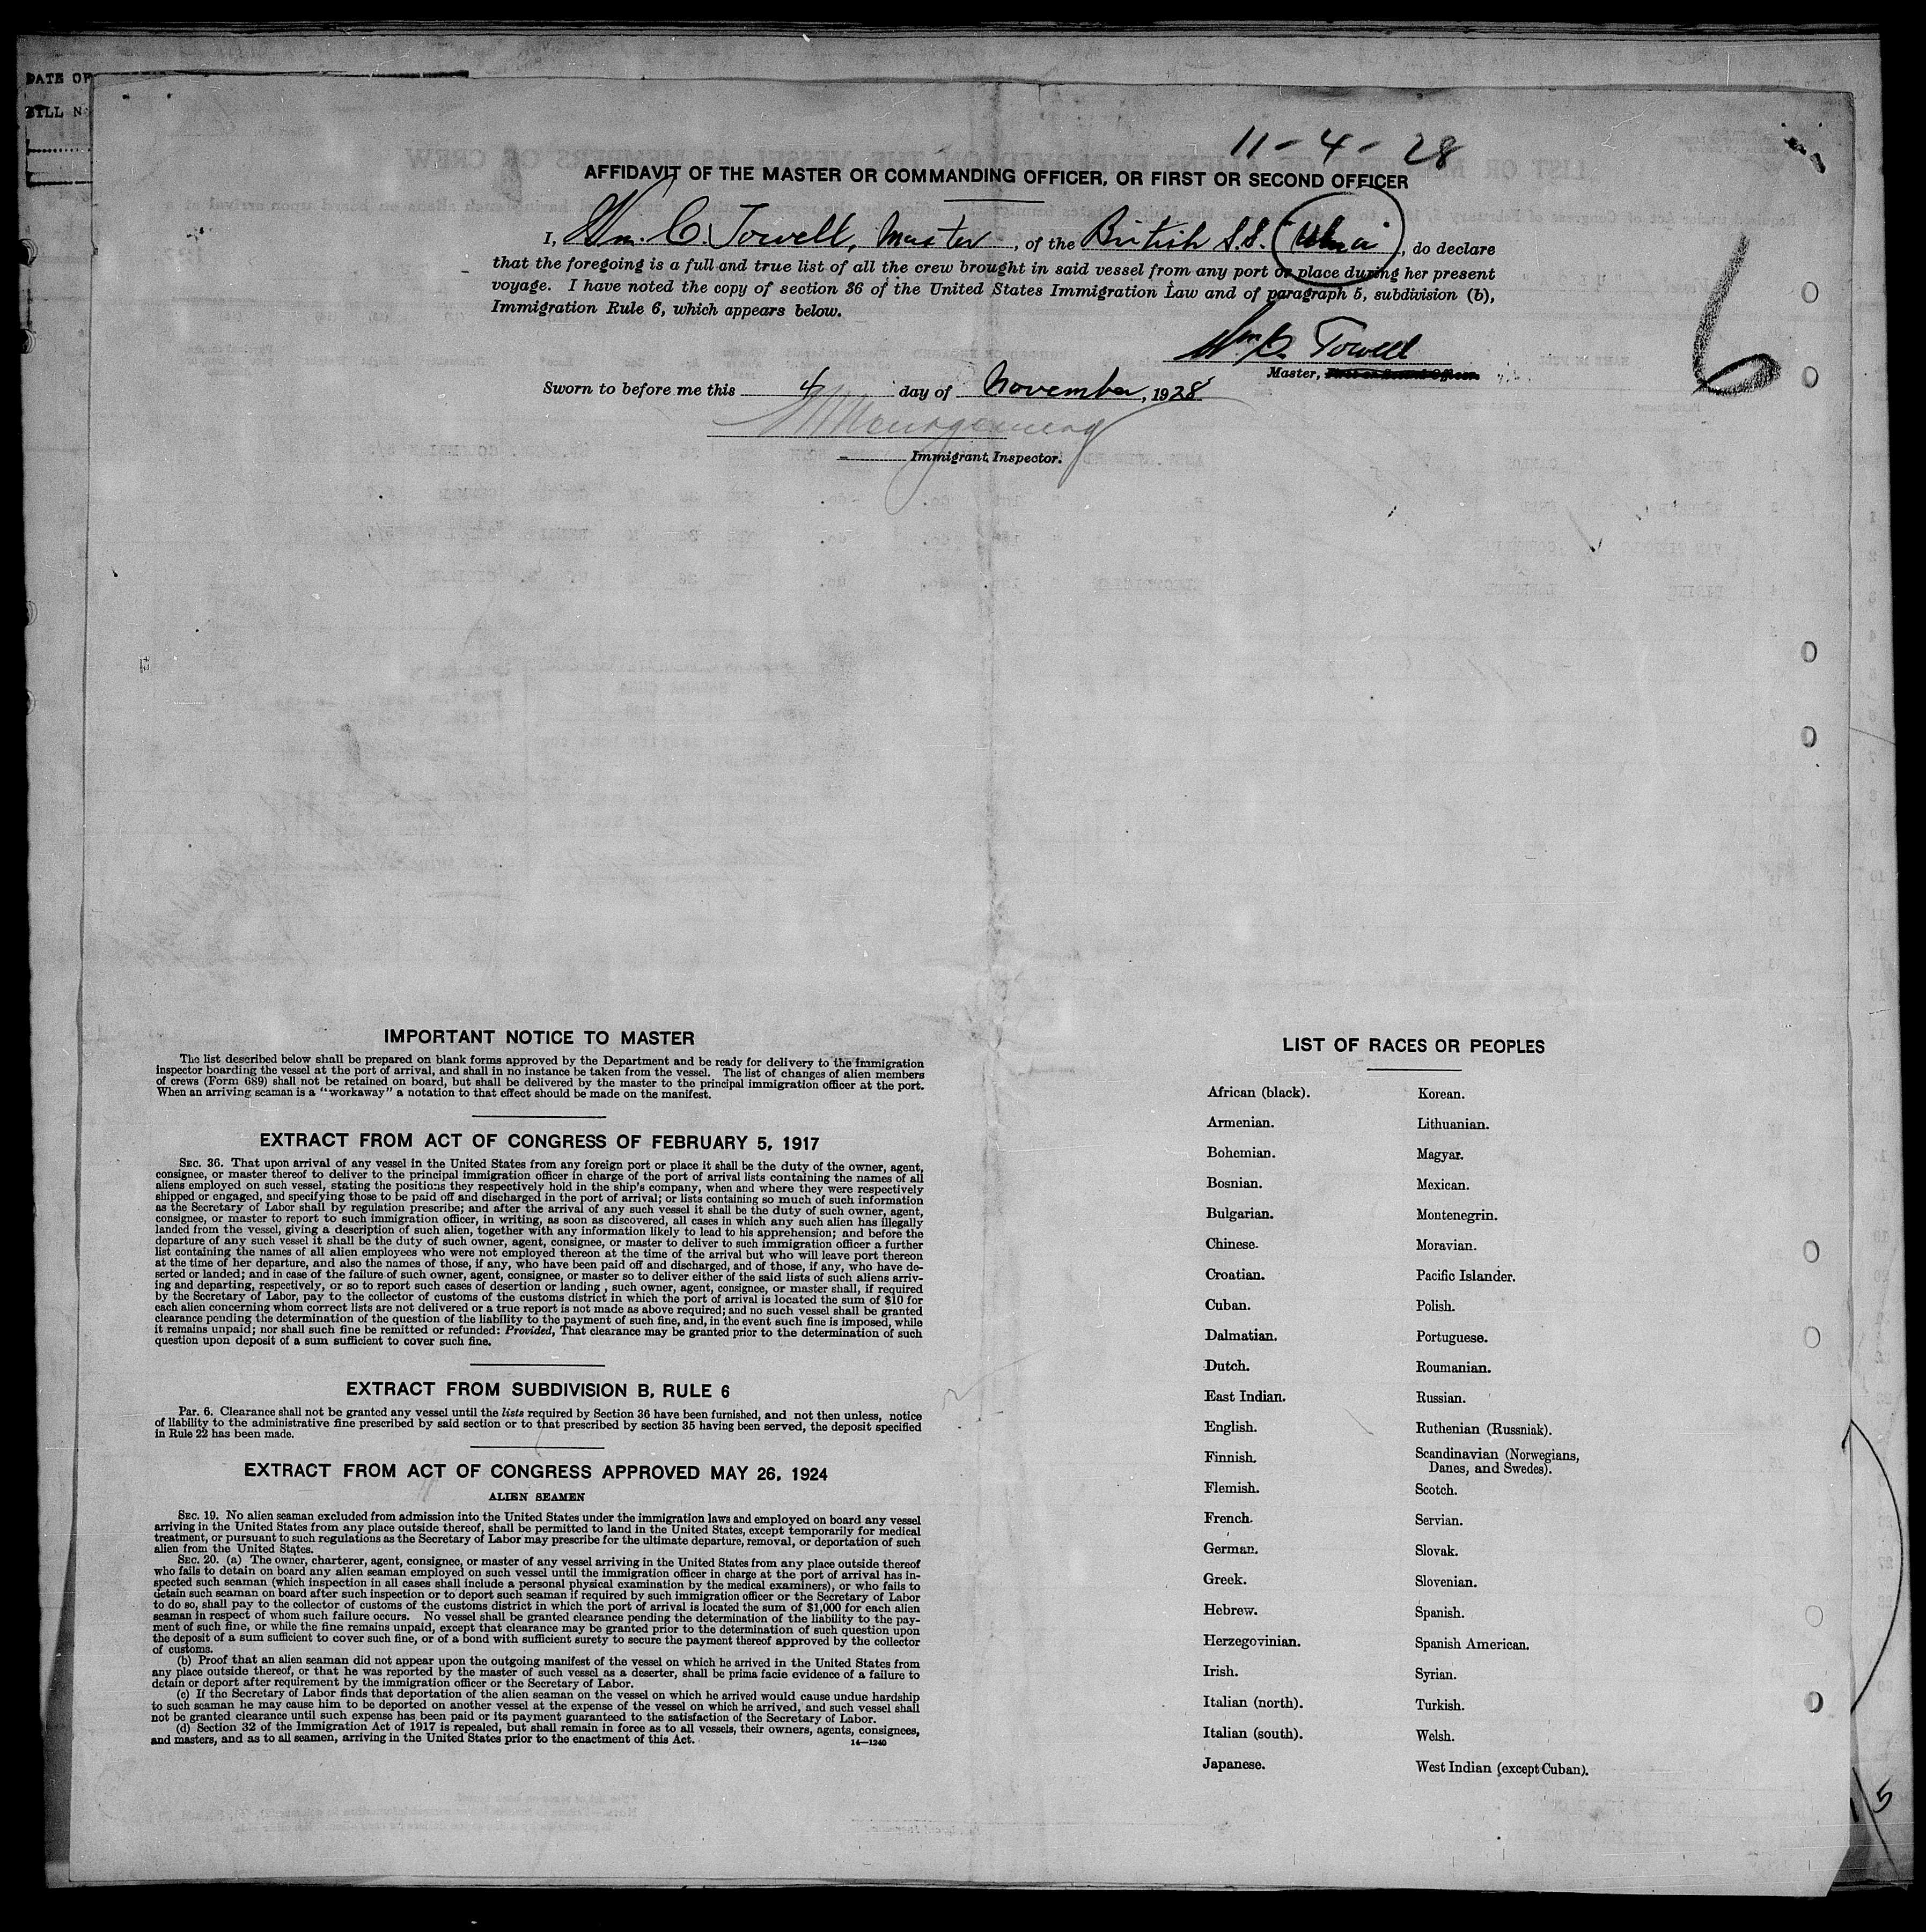 DATE OF
BILL N
11-4-28
AFFIDAVIT OF THE MASTER OR COMMANDING OFFICER, OR FIRST OR SECOND OFFICER
I, Wm. C. Towell, Master, of the British S.S. "Ulua", do declare
that the foregoing is a full and true list of all the crew brought in said vessel from any port or place during her present
voyage. I have noted the copy of section 36 of the United States Immigration Law and of paragraph 5, subdivision (b),
Immigration Rule 6, which appears below.
Wm C. Towell
Master, First or Second Officer.
6
Sworn to before me this 4 day of November, 1928
Immigrant Inspector.
IMPORTANT NOTICE TO MASTER
The list described below shall be prepared on blank forms approved by the Department and be ready for delivery to the immigration
inspector boarding the vessel at the port of arrival, and shall in no instance be taken from the vessel. The list of changes of alien members
of crews (Form 689) shall not be retained on board, but shall be delivered by the master to the principal immigration officer at the port.
When an arriving seaman is a "workaway" a notation to that effect should be made on the manifest.
EXTRACT FROM ACT OF CONGRESS OF FEBRUARY 5, 1917
SEC. 36. That upon arrival of any vessel in the United States from any foreign port or place it shall be the duty of the owner, agent,
consignee, or master thereof to deliver to the principal immigration officer in charge of the port of arrival lists containing the names of all
aliens employed on such vessel, stating the positions they respectively hold in the ship's company, when and where they were respectively
shipped or engaged, and specifying those to be paid off and discharged in the port of arrival; or lists containing so much of such information
as the Secretary of Labor shall by regulation prescribe; and after the arrival of any such vessel it shall be the duty of such owner, agent,
consignee, or master to report to such immigration officer, in writing, as soon as discovered, all cases in which any such alien has illegally
landed from the vessel, giving a description of such alien, together with any information likely to lead to his apprehension; and before the
departure of any such vessel it shall be the duty of such owner, agent, consignee, or master to deliver to such immigration officer a further
list containing the names of all alien employees who were not employed thereon at the time of the arrival but who will leave port thereon
at the time of her departure, and also the names of those, if any, who have been paid off and discharged, and of those, if any, who have de-
serted or landed; and in case of the failure of such owner, agent, consignee, or master so to deliver either of the said lists of such aliens arriv-
ing and departing, respectively, or so to report such cases of desertion or landing, such owner, agent, consignee, or master, shall, if required
by the Secretary of Labor, pay to the collector of customs of the customs district in which the port of arrival is located the sum of $10 for
each alien concerning whom correct lists are not delivered or a true report is not made as above required; and no such vessel shall be granted
clearance pending the determination of the question of the liability to the payment of such fine, and, in the event such fine is imposed, while
it remains unpaid; nor shall such fine be remitted or refunded: Provided, That clearance may be granted prior to the determination of such
question upon deposit of a sum sufficient to cover such fine.
EXTRACT FROM SUBDIVISION B, RULE 6
PAR. 6. Clearance shall not be granted any vessel until the lists required by Section 36 have been furnished, and not then unless, notice
of liability to the administrative fine prescribed by said section or to that prescribed by section 35 having been served, the deposit specified
in Rule 22 has been made.
EXTRACT FROM ACT OF CONGRESS APPROVED MAY 26, 1924
ALIEN SEAMEN
SEC. 19. No alien seaman excluded from admission into the United States under the immigration laws and employed on board any vessel
arriving in the United States from any place outside thereof, shall be permitted to land in the United States, except temporarily for medical
treatment, or pursuant to such regulations as the Secretary of Labor may prescribe for the ultimate departure, removal, or deportation of such
alien from the United States.
SEC. 20. (a) The owner, charterer, agent, consignee, or master of any vessel arriving in the United States from any place outside thereof
who fails to detain on board any alien seaman employed on such vessel until the immigration officer in charge at the port of arrival has in-
spected such seaman (which inspection in all cases shall include a personal physical examination by the medical examiners), or who fails to
detain such seaman on board after such inspection or to deport such seaman if required by such immigration officer or the Secretary of Labor
to do so, shall pay to the collector of customs of the customs district in which the port of arrival is located the sum of $1,000 for each alien
seaman in respect of whom such failure occurs. No vessel shall be granted clearance pending the determination of the liability to the pay-
ment of such fine, or while the fine remains unpaid, except that clearance may be granted prior to the determination of such question upon
the deposit of a sum sufficient to cover such fine, or of a bond with sufficient surety to secure the payment thereof approved by the collector
of customs.
(b) Proof that an alien seaman did not appear upon the outgoing manifest of the vessel on which he arrived in the United States from
any place outside thereof, or that he was reported by the master of such vessel as a deserter, shall be prima facie evidence of a failure to
detain or deport after requirement by the immigration officer or the Secretary of Labor.
(c) If the Secretary of Labor finds that deportation of the alien seaman on the vessel on which he arrived would cause undue hardship
to such seaman he may cause him to be deported on another vessel at the expense of the vessel on which he arrived, and such vessel shall
not be granted clearance until such expense has been paid or its payment guaranteed to the satisfaction of the Secretary of Labor.
(d) Section 32 of the Immigration Act of 1917 is repealed, but shall remain in force as to all vessels, their owners, agents, consignees,
and masters, and as to all seamen, arriving in the United States prior to the enactment of this Act.
14—1240
LIST OF RACES OR PEOPLES
African (black).
Armenian.
Bohemian.
Bosnian.
Bulgarian.
Chinese.
Croatian.
Cuban.
Dalmatian.
Dutch.
East Indian.
English.
Finnish.
Flemish.
French.
German.
Greek.
Hebrew.
Herzegovinian.
Irish.
Italian (north).
Italian (south).
Japanese.
Korean.
Lithuanian.
Magyar.
Mexican.
Montenegrin.
Moravian.
Pacific Islander.
Polish.
Portuguese.
Roumanian.
Russian.
Ruthenian (Russniak).
Scandinavian (Norwegians,
Danes, and Swedes).
Scotch.
Servian.
Slovak.
Slovenian.
Spanish.
Spanish American.
Syrian.
Turkish.
Welsh.
West Indian (except Cuban).
5